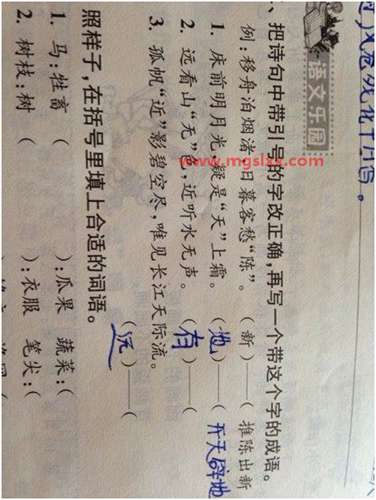 语文乐园
一、把诗句中带引号的字改正确,再写一个带这个字的成语。
例:移舟泊烟渚,日暮客愁“陈”。(新)——(推陈出新
1. 床前明月光,疑是“天”上霜。(地)——(开天辟地
2. 远看山“无”色,近听水无声。(有)——(
3. 孤帆“近”影碧空尽,唯见长江天际流。(远)——(
照样子,在括号里填上合适的词语。
1. 马:牲畜 ( ):瓜果 蔬菜:(
2. 树枝:树 ( ):衣服 笔尖:(
www.mgslzx.com